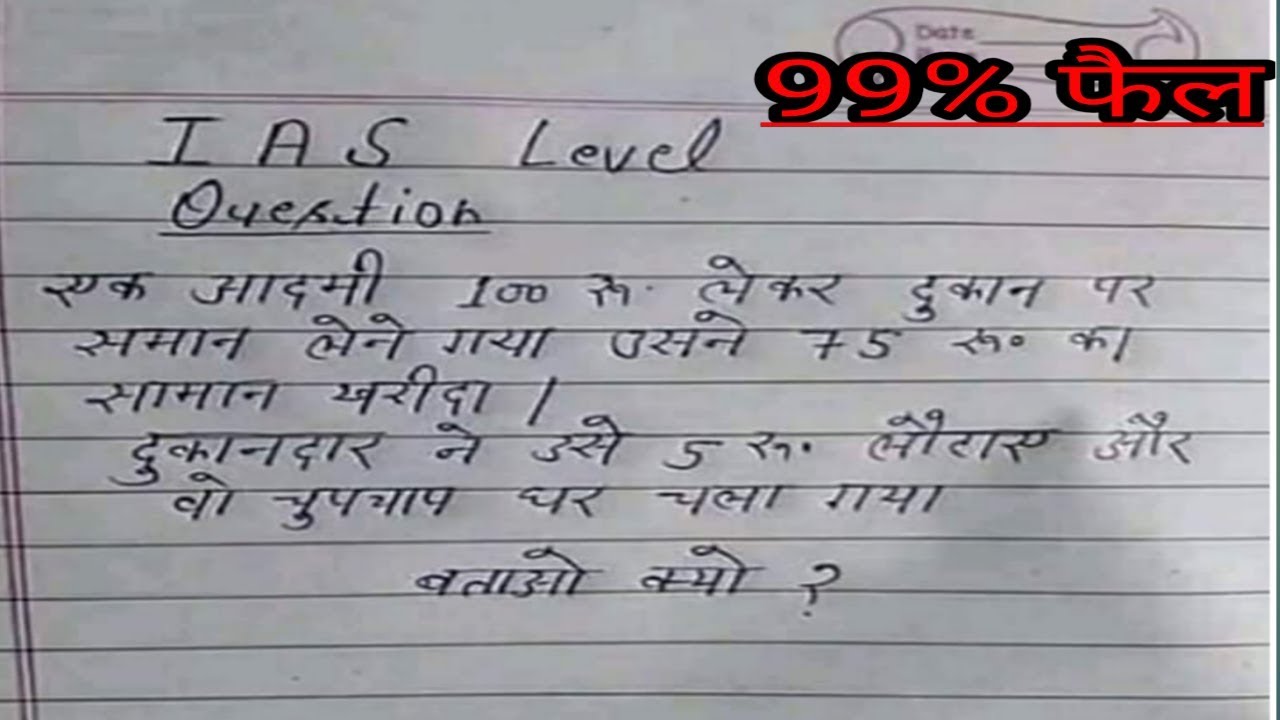 Date
99% फैल
IAS Level
Question
एक आदमी 100 रू. लेकर दुकान पर
समान लेने गया उसने 75 रू० का
सामान खरीदा।
दुकानदार ने उसे 5 रू. लौटाए और
वो चुपचाप घर चला गया
बताओ क्यो ?